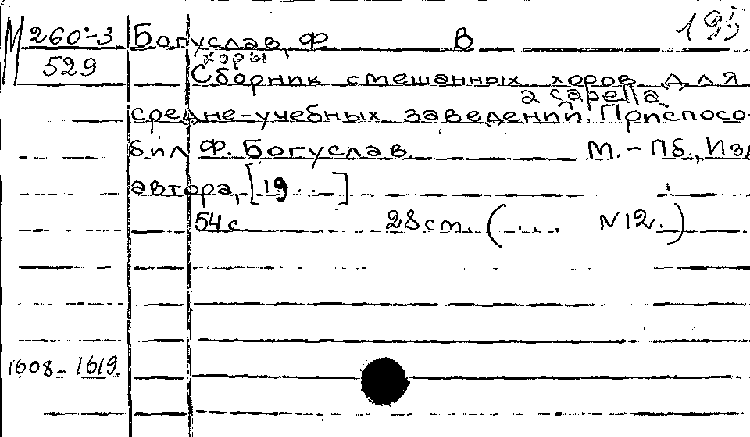 М 260-3 Богуслав, Ф. В 195
529 хоры
Сборник смешанных хоров для
a capella
средне-учебных заведений. Приспосо-
бил Ф. Богуслав. М. - Пб., Изд
автора, [19 . . ]
54 с 28 см. (. . . . N 12.)
1608-1619